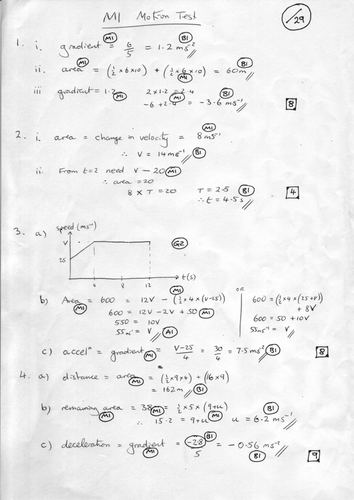 M1 Motion Test
/29
1. i. gradient = 6/5 = 1.2 ms⁻² M1 B1
ii. area = (½×6×10) + (½×6×10) = 60m M1 B1
iii gradient = 1.2 M1 2×1.2 = 2.4 B1
-6 + 2.4 = -3.6 ms⁻¹ M1 B1
8
2. i. area = change in velocity = 8 ms⁻¹ M1
∴ V = 14 ms⁻¹ B1
ii. From t=2 need V - 20 M1
∴ area = 20
8 × T = 20 T = 2.5 B1
∴ t = 4.5 s
4
3. a) speed (ms⁻¹)
V
G2
25
4 8 12 t(s)
b) Area = 600 = 12V - (½×4×(V-25)) M1 M1
600 = 12V - 2V + 50 M1
550 = 10V
55 ms⁻¹ = V A1
OR
600 = (½×4×(25+V)) + 8V
600 = 50 + 10V
55 ms⁻¹ = V
c) accelⁿ = gradient = V-25/4 = 30/4 = 7.5 ms⁻² M1 M1 B1
8
4. a) distance = area = (½×9×4) + (16×9) M1 M1
= 162m B1
b) remaining area = 38 = ½×5×(9+u) M1 M1
∴ 15.2 = 9+u u = 6.2 ms⁻¹ M1 B1
c) deceleration = gradient = -2.8/5 = -0.56 ms⁻² M1 B1 B1
9